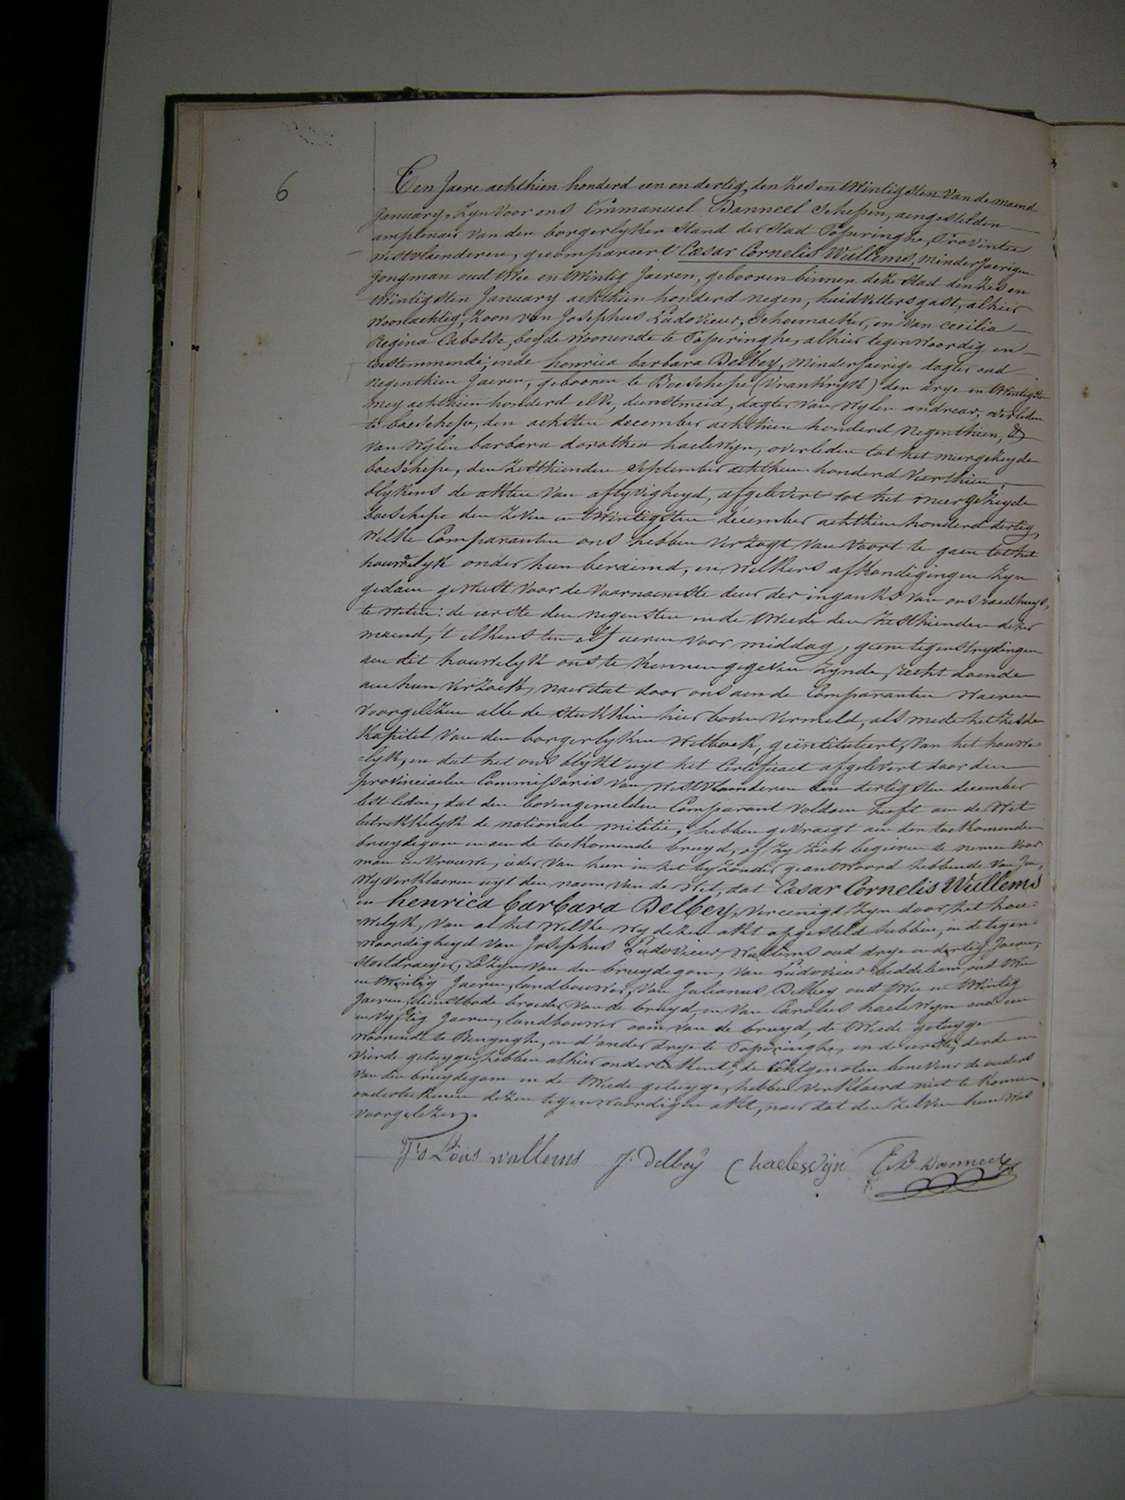 6
Ten Jaere achthien honderd een en dertig, den zes en twintigsten van de maend
January, zyn voor ons Emmanuel Vanneel schepen, aengestelden
amptenaer van den borgerlyken stand der stad Poperinghe, Provintie
Westvlaenderen, gecompareert Casar Cornelis Wullems, minderjaerigen
jongman oud twee en twintig jaeren, gebooren binnen deze stad den zes en
twintigsten January achthien honderd negen, huidvettersgast, alhier
woonachtig, zoon van Josephus Ludovicus, schoenmaeker, en van cecilia
Regina Cabolde, beyde woonende te Poperinghe, alhier tegenwoordig en
toestemmende; ende henrica barbara Delbey, minderjaerige dogter oud
negenthien jaeren, gebooren te Boeschepe (Vrankryk) den drye en twintigsten
mey achthien honderd elf, dienstmeid, dogter van wylen andreas, overleden
te boeschepe, den achsten december achthien honderd negenthien, &
van wylen barbara dorothea haelewyn, overleden tot het meergezeyde
boeschepe, den zesthienden september achthien honderd vierthien,
blykens de akten van aflyvigheyd, afgelevert tot het meergezeyde
boeschepe den zeven en twintigsten december achthien honderd dertig,
welke Comparanten ons hebben verzogt van voort te gaen tot het
houwelyk onder hun beraemd, en welkers afkondigingen zyn
gedaen geweest voor de voornaemste deur der ingank van ons raedhuys,
te weten: de eerste den negensten en de tweede den zesthienden dezer
maend, 't elkens ten elf ueren voor middag, geene tegenstrydingen
aen dit houwelyk ons te kennen gegeven zynde, recht doende
aen hun verzoek, naer dat door ons aen de Comparanten waeren
voorgelezen alle de stukken hier boven vermeld, als mede het zesde
kapitel van den borgerlyken wetboek, geïntituleert, van het houwe-
lyk, en dat het ons blykt uyt het Certificaet afgelevert door den
provincialen Commissaris van Westvlaenderen den dertigsten december
lest leden, dat den bovengemelden Comparant voldaen heeft aen de wet
betrekkelyk de nationale militie, hebben gevraegt aen den toekomenden
bruydegom en aen de toekomende bruyd, of zy zich begeeren te nemen voor
man en vrouwe, ieder van hun in het byzonder geantwoord hebbende van Ja,
wy verklaeren uyt den naem van de wet, dat Casar Cornelis Wullems
en henrica barbara Delbey, vereenigt zyn door het hou-
welyk, van al het welke wy dezen akt opgesteld hebben, in de tegen-
woordigheyd van Josephus Ludovicus Wullems oud drye en dertig jaeren,
van den bruydegom, van Ludovicus oud twee
en twintig jaeren, landbouwer, van Julianus Delbey oud twee en twintig
jaeren, dienstbode broeder van de bruyd, en van Carolus haelewyn oud een
en vyftig jaeren, landbouwer oom van de bruyd, de tweede getuyge
woonende te en d'ander drye te Poperinghe, en de eerste, derde en
vierde getuygen hebben alhier onderteekent, de Echtgenoten benevens de ouders
van den bruydegom en de tweede getuyge, hebben verklaerd niet te konnen
onderteekenen dezen tegenwoordigen akt, naer dat den zelven hun was
voorgelezen.
wullems J. Delbeÿ C haelewÿn E. Vanneel